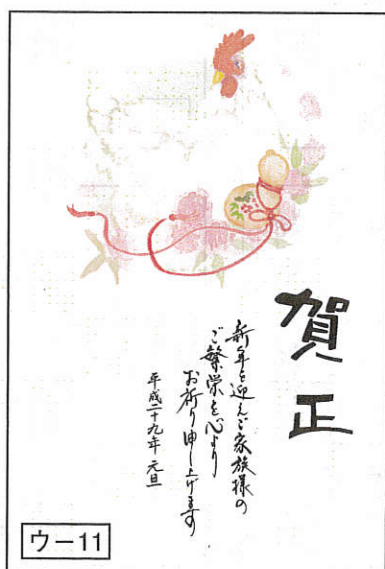 賀正
新年を迎えご家族様の
ご繁栄を心より
お祈り申し上げます
平成二十九年 元旦
ウー11